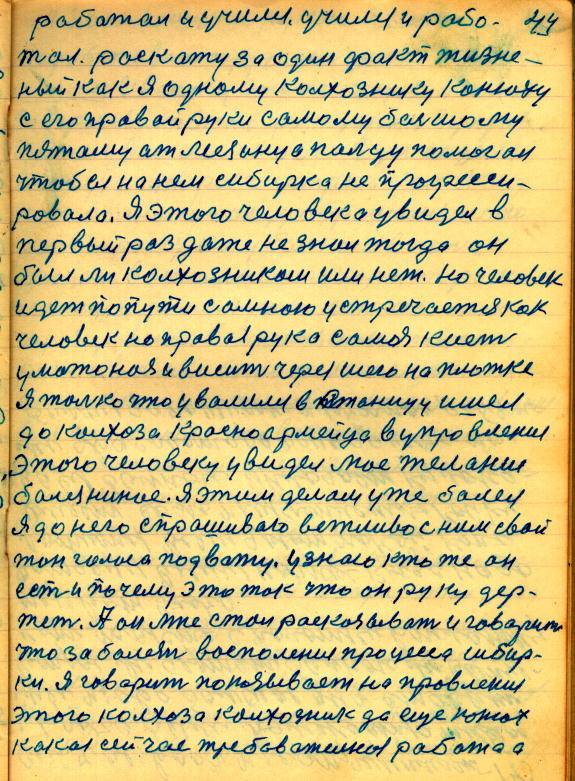 44
работал и училс. училс и рабо-
тал. роскажу за один факт жизне-
ный как я одному колхознику конюху
с его правай руки самому болшому
пятаму от мезонуа палцу помогал
чтобы на нем сибирка не процесси-
ровала. Я этого человека увидел в
первый раз даже не знал тогда он
были ли колхозником или нет. но человек
идет по пути самною устречается как
человек но правая рука самоя кист
уматоная и висит через шею на платке
Я толко что увалили в станицу ишел
до колхоза Красноармейца в упровления
Этого человеку увидел мое желания
болезниное. Я этим делам уже болел
Я до него спрашиваю ветливо с ним свой
тон голоса подвожу. узнаю кто же он
ест и почему это так что он руку дер-
жет. А он мне стал расказыват и говорит
что заболел восполения процеса сибир-
ки. Я говорит показывает на провления
этого колхоза колхозник да еще конюх
какая сейчас требователноя работа а